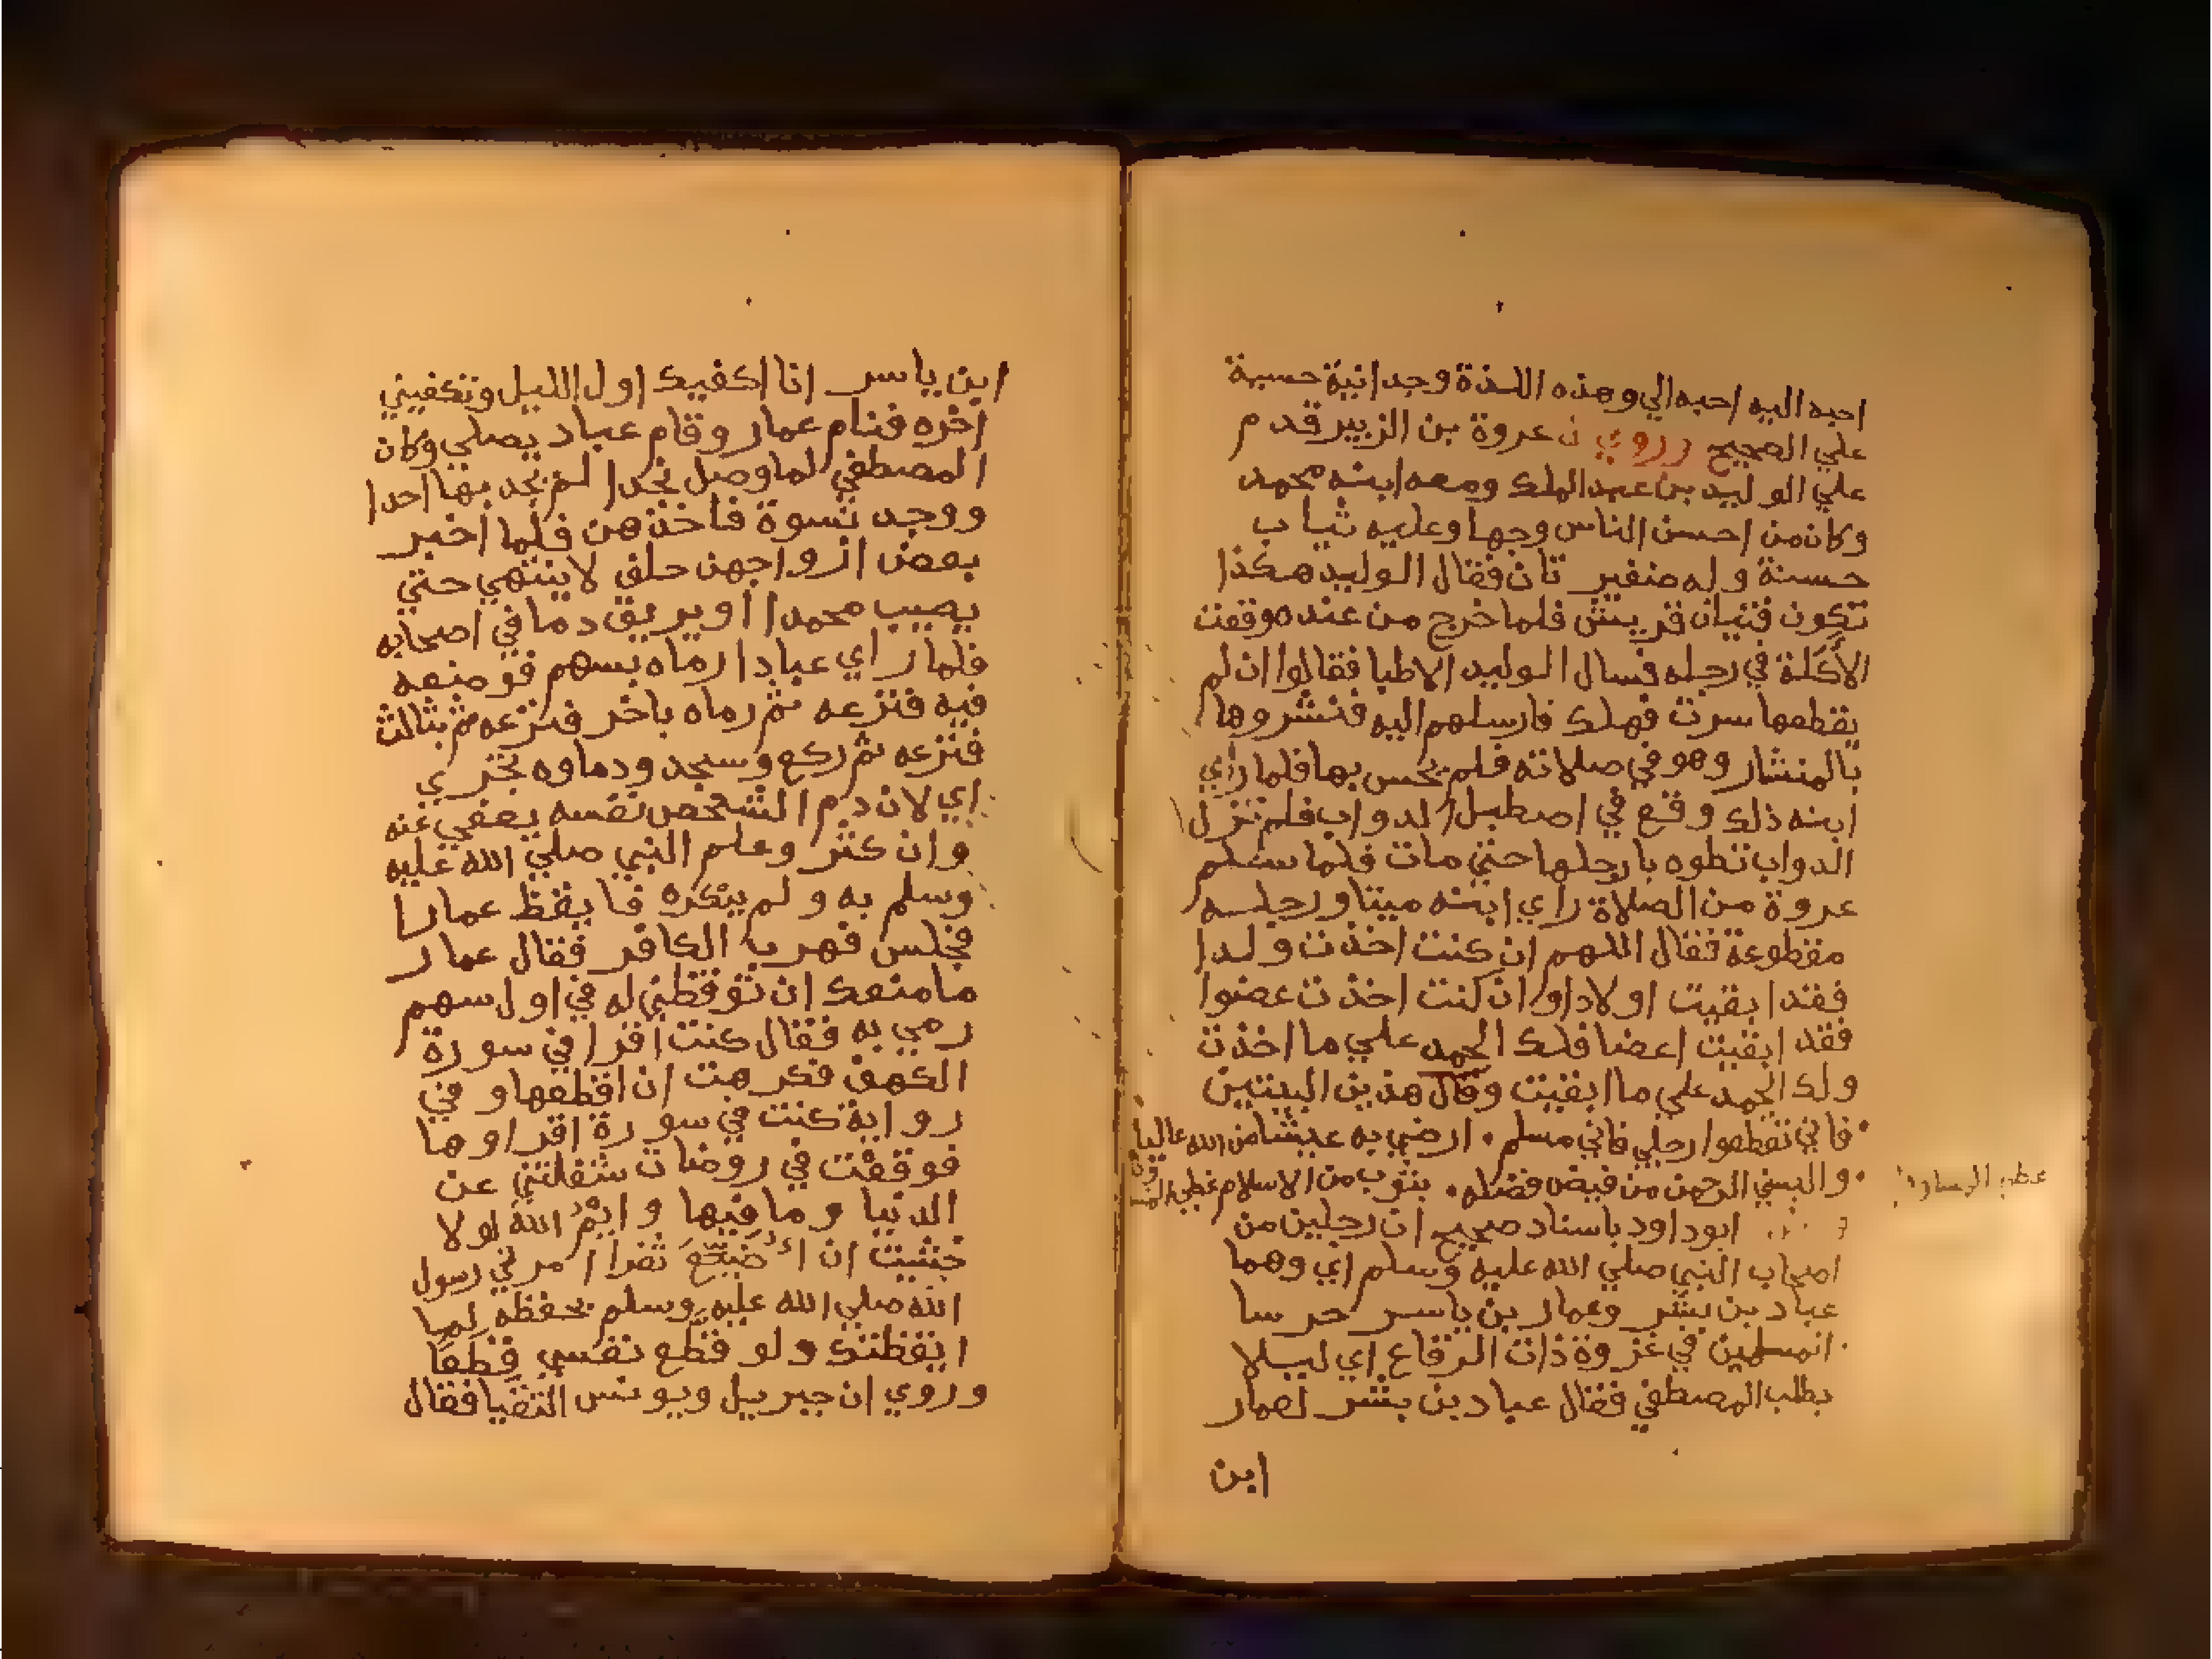 احبه اليه احبه الي وهذه اللذة وجدانية حسية
علي الصحيح وروي ان عروة بن الزبير قدم
علي الوليد بن عبد الملك ومعه ابنه محمد
وكان من احسن الناس وجها وعليه ثياب
حسنة وله ضفيرتان فقال الوليد هكذا
تكون فتيان قريش فلما خرج من عنده وقعت
الأكلة في رجله فسال الوليد الاطبا فقالوا ان لم
يقطعها سرت فهلك فارسلهم اليه فنشروها
بالمنشار وهو في صلاته فلم يحس بها فلما راي
ابنه ذلك وقع في اصطبل الدواب فلم تزل
الدواب تطوه بارجلها حتي مات فلما سلم
عروة من الصلاة راي ابنه ميتا ورجله
مقطوعة فقال اللهم ان كنت اخذت ولدا
فقد ابقيت اولادا وان كنت اخذت عضوا
فقد ابقيت اعضا فلك الحمد علي ما اخذت
ولك الحمد علي ما ابقيت وقال هذين البيتين
فاني تقطعوا رجلي فاني مسلم . ارضي به عيشا من الله عاليا
والبسني الرحمن من فيض فضله . بثوب من الاسلام غطي
ابوداود باسناد صحيح ان رجلين من
اصحاب النبي صلي الله عليه وسلم اي وهما
عباد بن بشر وعمار بن ياسر حرسا
المسلمين في غزوة ذات الرقاع اي ليلا
بطلب المصطفي فقال عباد بن بشر لعمار
ابن
ابن ياسر انا اكفيك اول الليل وتكفيني
اخره فنام عمار وقام عباد يصلي وكان
المصطفي لما وصل نجدا لم يجد بها احدا
ووجد نسوة فاخذهن فلما اخبر
بعض ازواجهن حلف لا ينتهي حتي
يصيب محمدا او يريق دما في اصحابه
فلما راي عبادا رماه بسهم فوضعه
فيه فنزعه ثم رماه باخر فنزعه ثم بثالث
فنزعه ثم ركع وسجد ودماوه تجري
اي لان دم الشخص نفسه يعفي عنه
وان كثر وعلم النبي صلي الله عليه
وسلم به ولم ينكره فايقظ عمارا
فجلس فهرب الكافر فقال عمار
ما منعك ان توقظني له في اول سهم
رمي به فقال كنت اقرا في سورة
الكهف فكرهت ان اقطعها وفي
رواية كنت في سورة اقراوها
فوقفت في روضات شغلتني عن
الدنيا وما فيها وايم الله لولا
خشيت ان اضيع ثغرا امرني رسول
الله صلي الله عليه وسلم بحفظه لما
ايقظتك ولو قطع نفسي قطعا
وروي ان جبريل ويونس التقيا فقال